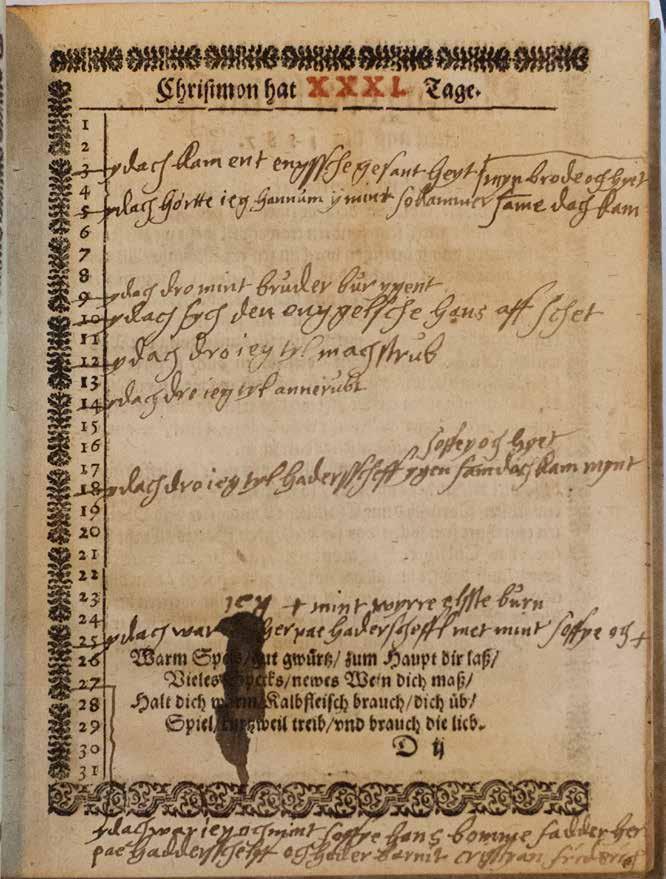 Chrisimon hat XXXI. Tage.
1
2
3 ydach kam ent engssche gesant heyt myn brode och hyet
4
5 ydach hørtte ieg hannúm ÿ mint sokammer same dach kam
6
7
8
9 ydach dro mint bruder bur ygent
10 ydach sych den enggelsche hans aff schet
11
12 ydach dro ieg tyl machstrub
13
14 ydach dro ieg tyl annerubt
15
16 soffey och hyet
17
18 ydach dro ieg tyl haderscheff ygen samdach kam mynt
19
20
21
22
23 ieg + mint yrre elste burn
24
25 ydach war her pae haderscheff met mint soffye och +
26 Warm Speis/gut gwürtz/ zum Haupt dir laß/
27 Vieles Specks/newes Wein dich maß/
28 Halt dich warm/Kalbfleisch brauch/dich üb/
29 Spiel/kurtzweil treib/vnd brauch die lieb.
30 D ij
31
ydach war ieg och mint soffye hans bomme fadder her
pae hadderscheff och heder barnit crystian frideric